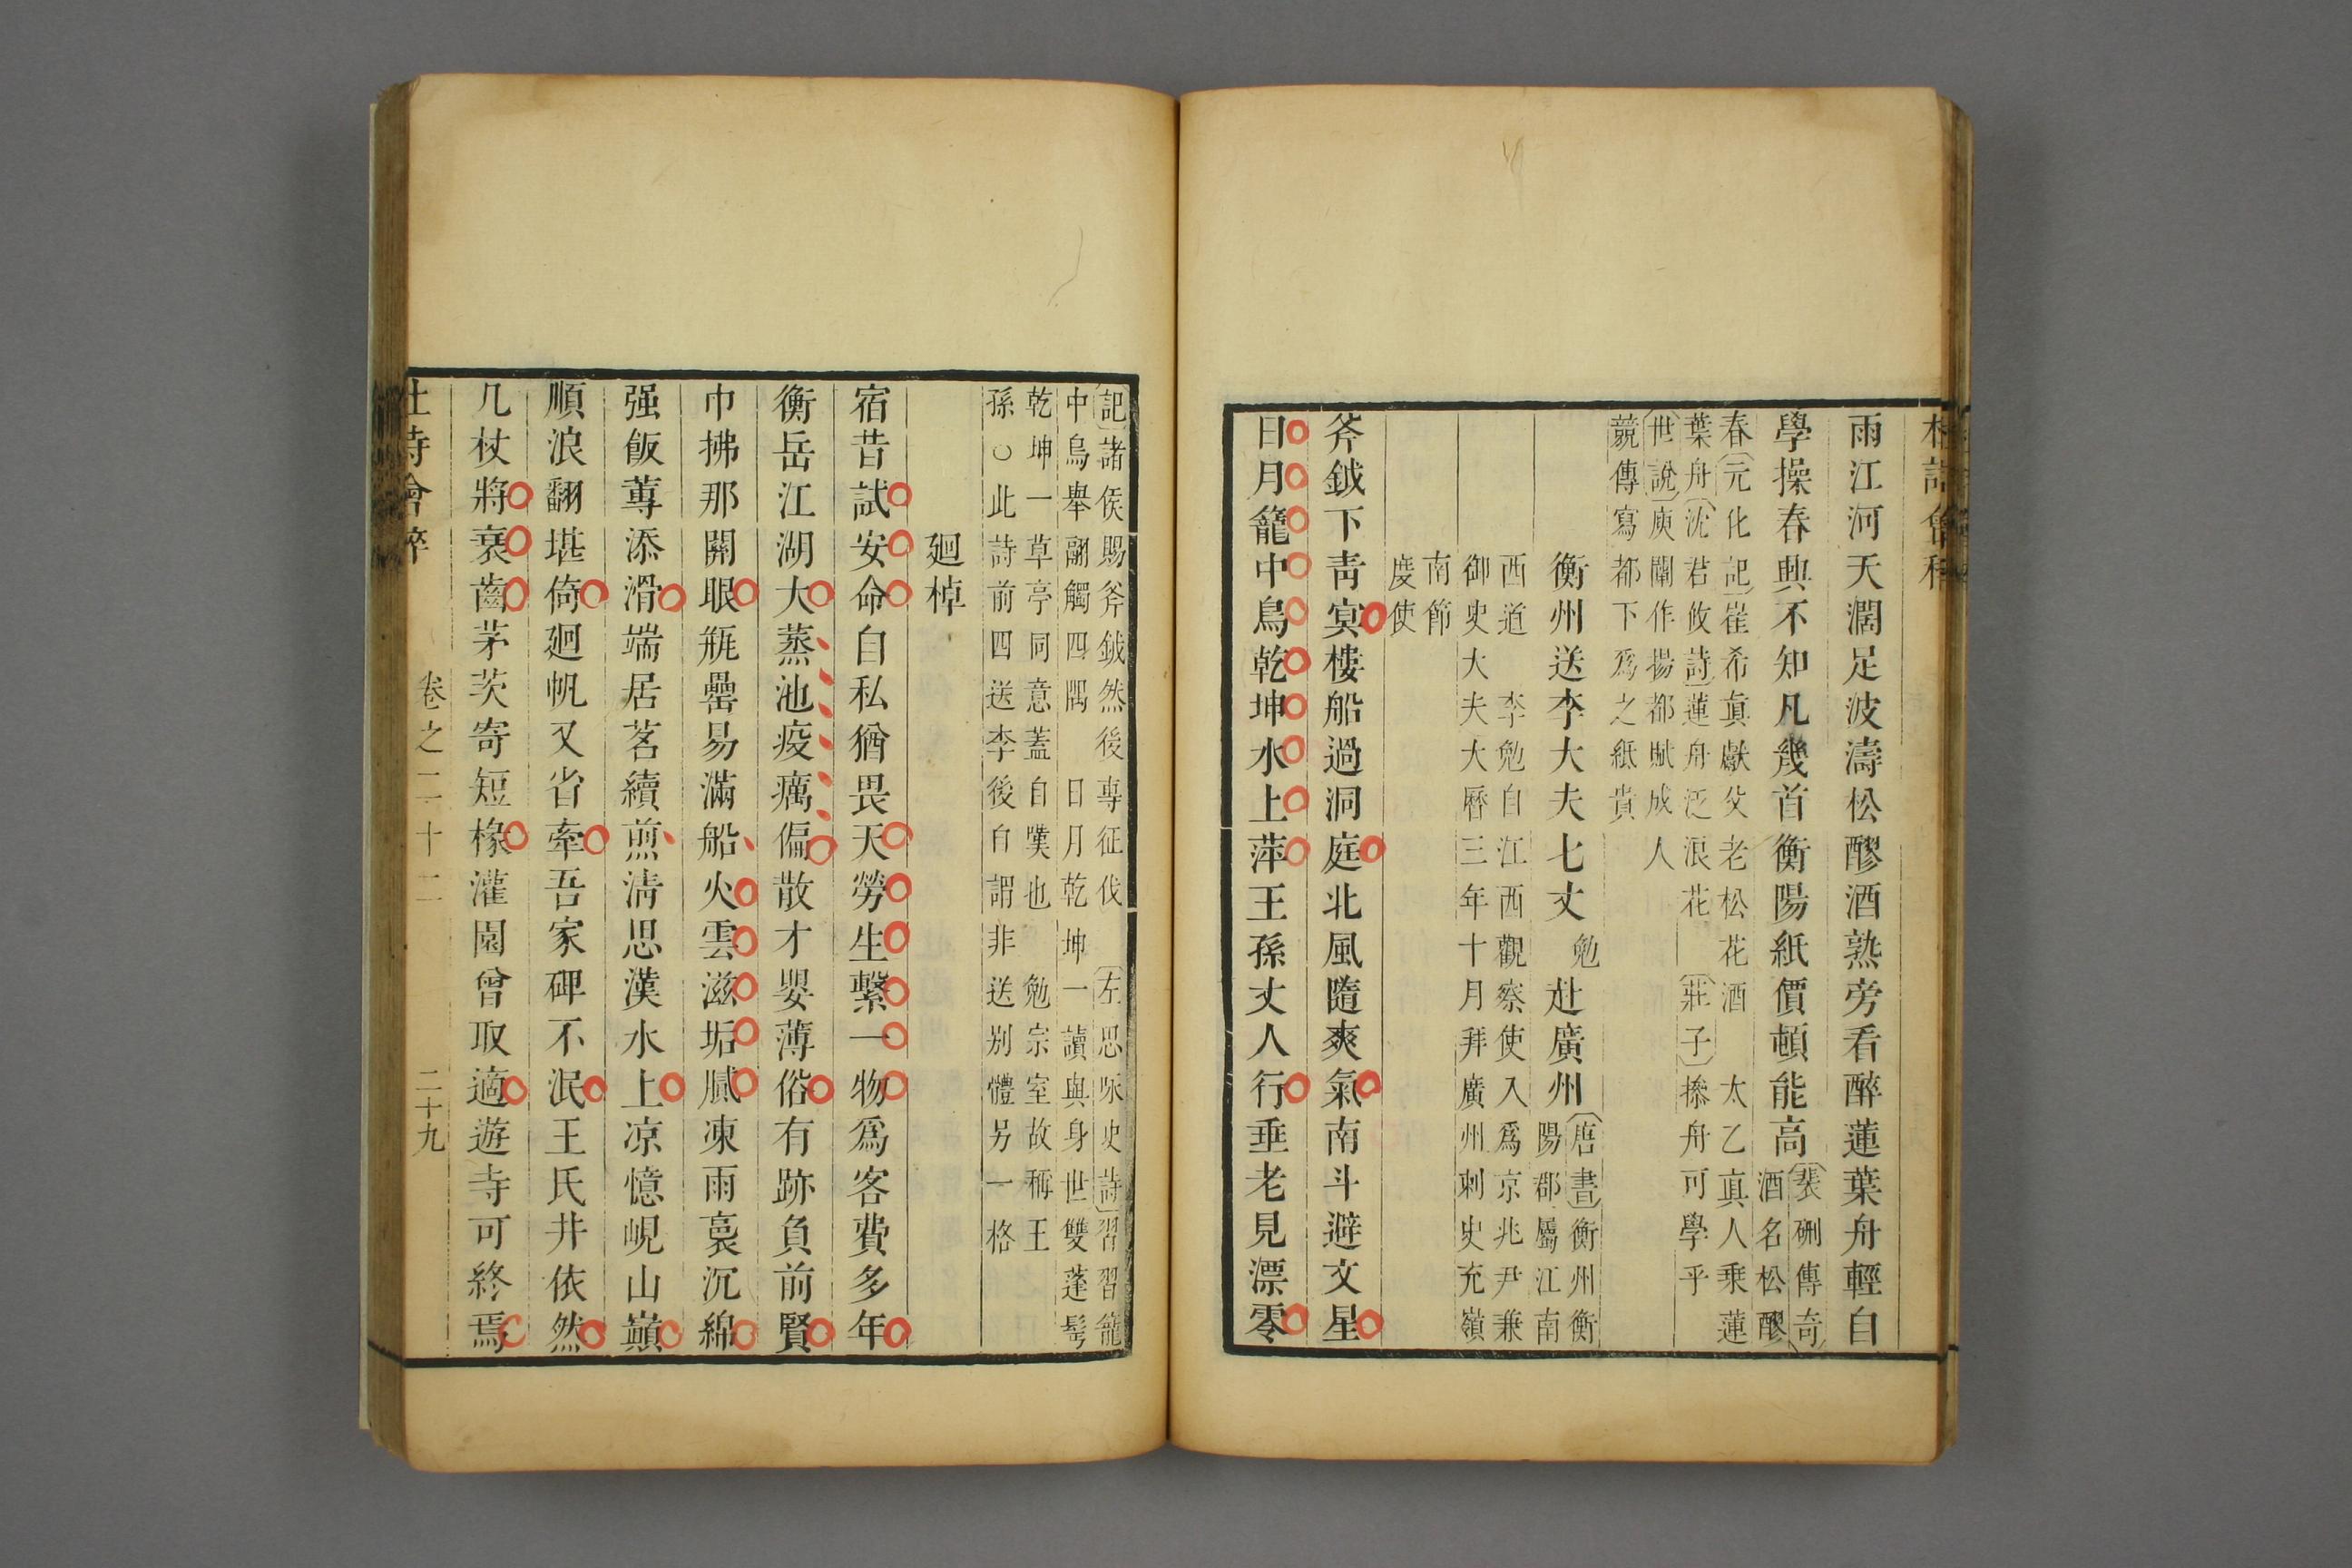 雨江河天濶足波濤松醪酒熟旁看醉蓮葉舟輕自
學操春興不知凡幾首衡陽紙價頓能高
裴硎傳奇
酒名松醪
春元化記崔希真獻父老松花酒 太乙真人乗蓮
葉舟沈君攸詩蓮舟泛浪花 莊子㨻舟可學乎
世說庾闡作揚都賦成人
競傳寫都下爲之紙貴
衡州送李大夫七丈勉赴廣州
唐書衡州衡
陽郡屬江南
西道 李勉自江西觀察使入爲京兆尹兼
御史大夫大曆三年十月拜廣州刺史充嶺
南節
度使
斧鉞下靑冥樓船過洞庭北風隨爽氣南斗避文星
日月籠中鳥乾坤水上萍王孫丈人行垂老見漂零
記諸侯賜斧鉞然後專征伐 左思咏史詩習習籠
中鳥舉翮觸四隅 日月乾坤一讀與身世雙蓬鬂
乾坤一草亭同意蓋自嘆也 勉宗室故稱王
孫○此詩前四送李後自謂非送别體另一格
廻棹
宿昔試安命自私猶畏天勞生繫一物爲客費多年
衡岳江湖大蒸池疫癘偏散才嬰薄俗有跡負前賢
巾拂那關眼瓶罍易滿船火雲滋垢膩凍雨裛沉綿
强飯蓴添滑端居茗續煎淸思漢水上凉憶峴山巔
順浪翻堪倚廻帆又省牽吾家碑不泯王氏井依然
几杖將衰齒茅茨寄短椽灌園曾取適遊寺可終焉
卷之二十二 二十九